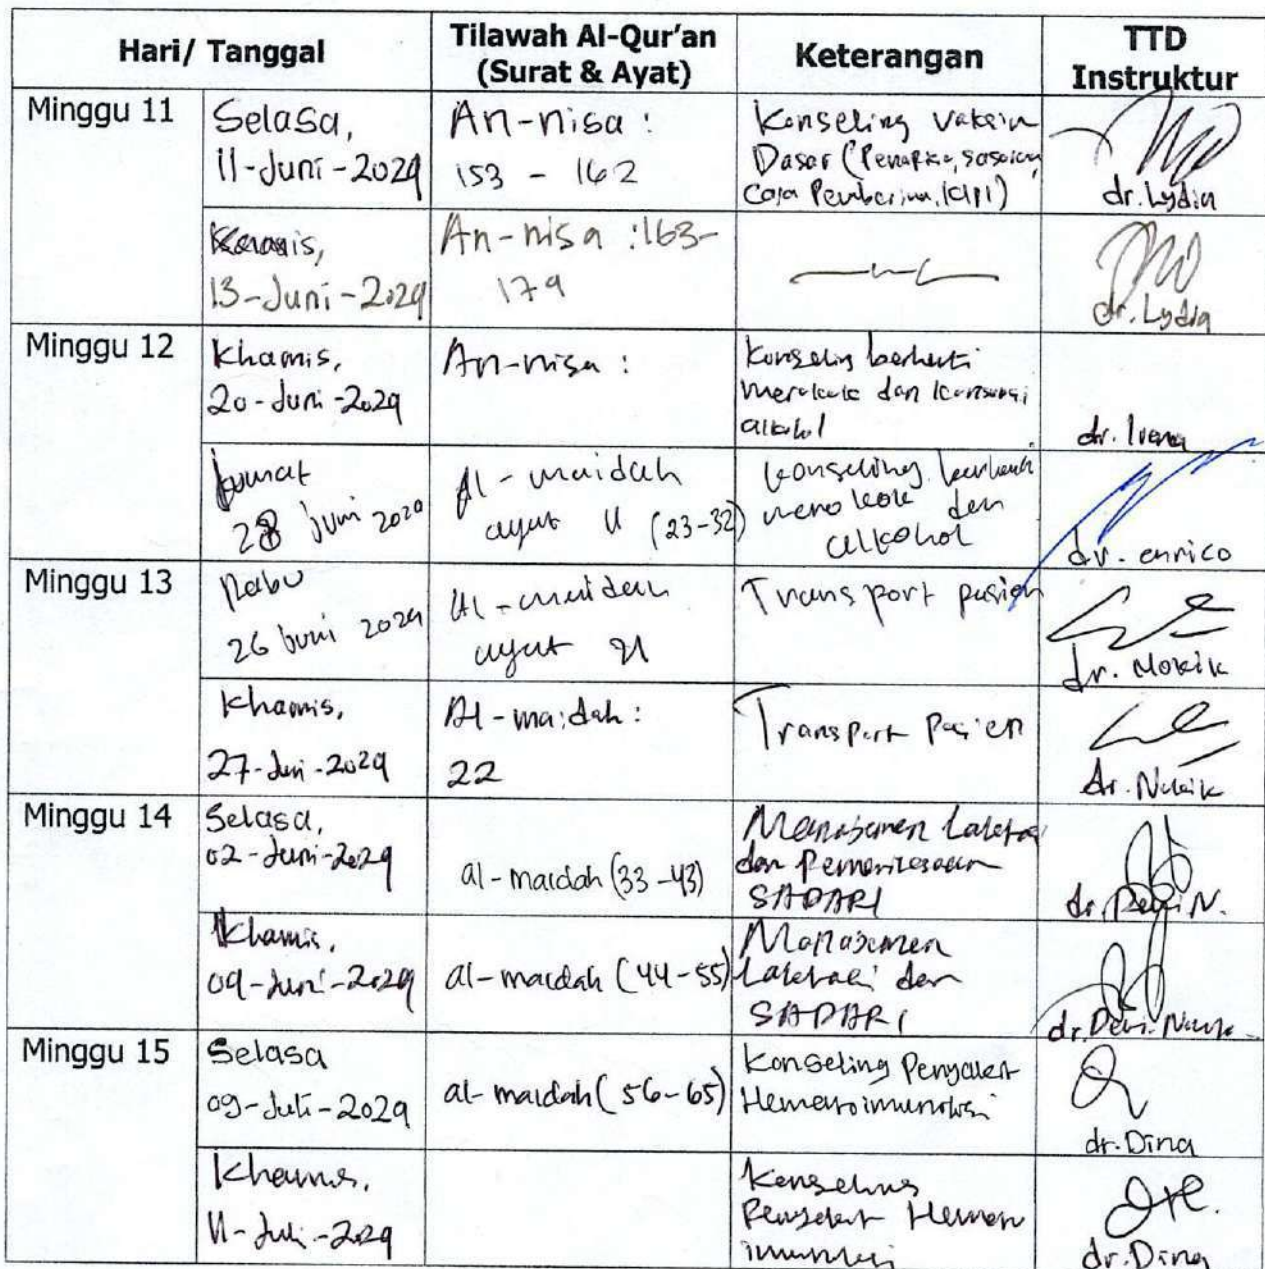 Hari/ Tanggal
Tilawah Al-Qur'an
(Surat & Ayat)
Keterangan
TTD
Instruktur
Minggu 11
Selasa,
11-Juni-2024
An-nisa :
153 - 162
Konseling Vaksin
Dasar
dr. Lydia
Kamis,
13-Juni-2024
An-nisa :163-
179
dr. Lydia
Minggu 12
Khamis,
20-Juni-2024
An-nisa :
Konseling berhenti
merokok dan konsumsi
alkohol
dr. Ivena
Jumat
28 Juni
Al-maidah
ayat (23-32)
konseling berhenti
merokok dan
alkohol
dr. enrico
Minggu 13
Rabu
26 Juni 2024
Al-maidah
ayat 21
Transport pasien
dr.
Khamis,
27-Juni-2024
Al-maidah :
22
Transport Pasien
dr.
Minggu 14
Selasa,
02-Juni-2024
al-maidah (33-43)
Manajemen Laktasi
dan Pemeriksaan
SADARI
dr. Devi N.
Khamis,
04-Juni-2024
al-maidah (44-55)
Manajemen
Laktasi dan
SADARI
dr. Devi
Minggu 15
Selasa
09-Juli-2024
al-maidah (56-65)
Konseling Penyakit
Hematoimunologi
dr. Dina
Khamis,
11-Juli-2024
Konseling
Penyakit Hemato
imunologi
dr. Dina